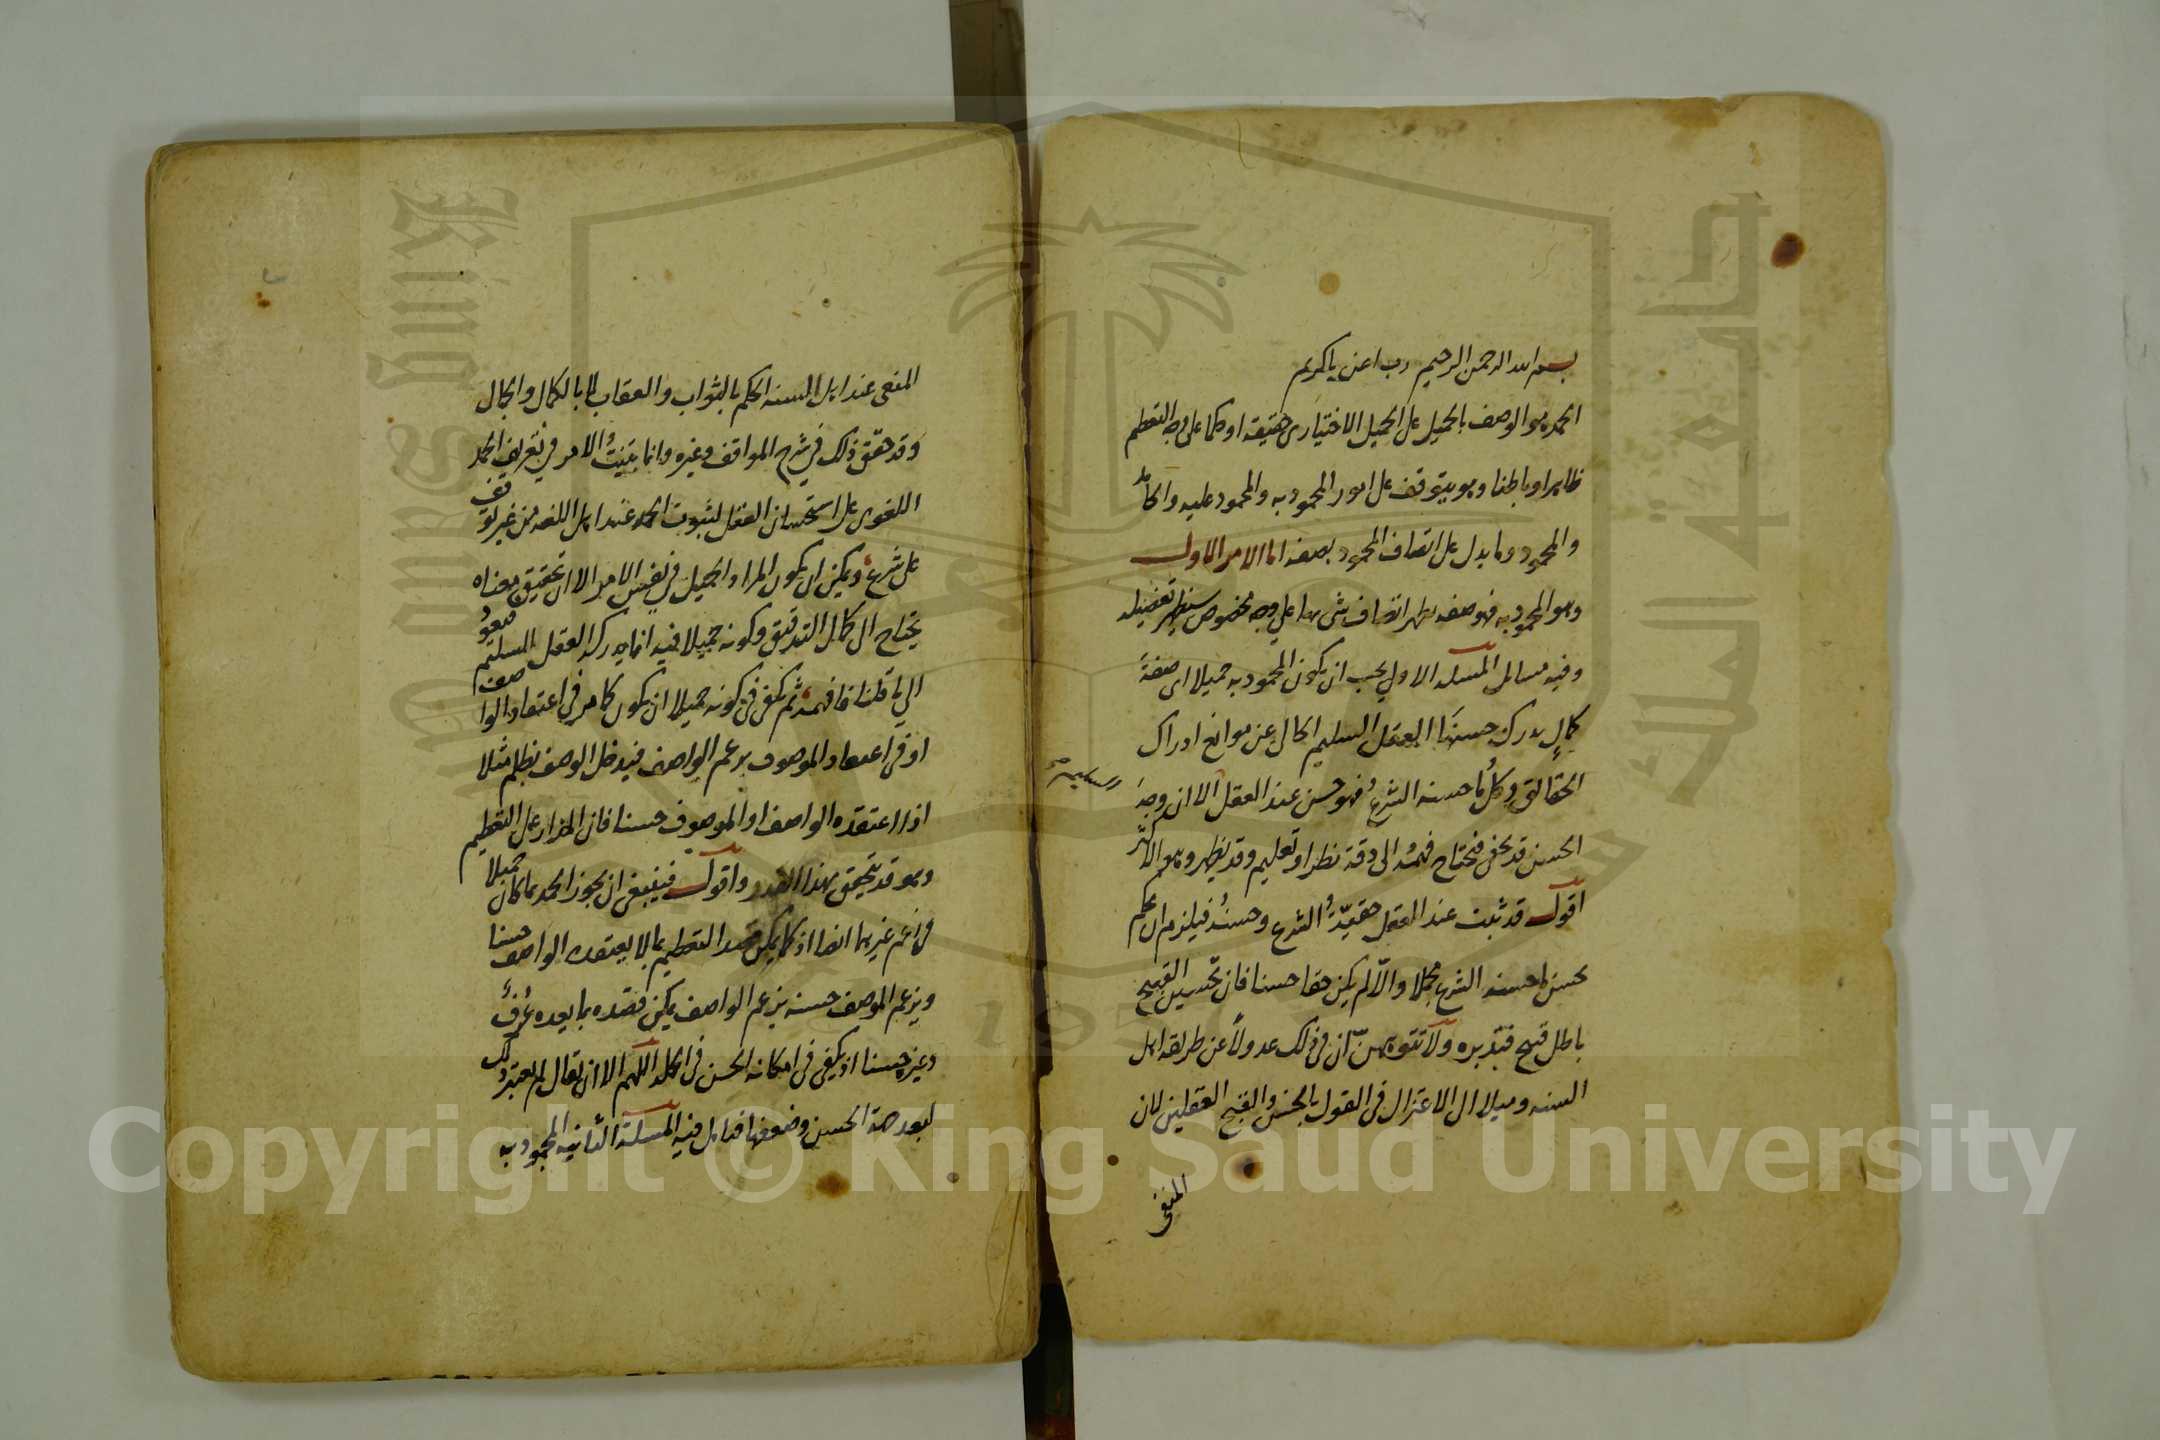 بسم الله الرحمن الرحيم رب اعن يا كريم
الحمد هو الوصف بالجميل على الجميل الاختياري حقيقه او حكما على وجه التعظيم
ظاهرا وباطنا وهو يتوقف على امور المحمود به والمحمود عليه والحامد
والمحمود وما يدل على اتصاف المحمود بصفه اما الامر الاول
وهو المحمود به فهو صفه يظهر اتصاف شى بها على وجه مخصوص سيظهر تفصيله
وفيه مسائل المسئله الاولى يجب ان يكون المحمود به جميلا اى صفة
كمال يدرك حسنها العقل السليم الخالى عن موانع ادراك
الحقائق وكل ما حسنه الشرع فهو حسن عند العقل الا ان وجه
الحسن قد يخفى فيحتاج فهمه الى دقة نظر او تعليم وقد يظهر وهو الاكثر
اقول قد ثبت عند العقل حقية الشرع وحسنه فيلزم ان يحكم
بحسن ما حسنه الشرع مجملا والا لم يكن حقا حسنا فان تحسين القبيح
باطل قبيح فتدبره ولا تتوهمن ان في ذلك عدولا عن طريقه اهل
السنه وميلا الى الاعتزال فى القول بالحسن والقبح العقلين لان
المنفى
المنفى عند اهل السنه الحكم بالثواب والعقاب لا بالكمال والجمال
وقد حقق ذلك في شرح المواقف وغيره وانما بنيت الامر في تعريف الحمد
اللغوى على استحسان العقل لثبوت الحمد عند اهل اللغه من غير توقف
على شرع ويمكن ان يكون المراد الجميل في نفس الامر الا ان تحقيق معناه
يحتاج الى كمال التدقيق وكونه جميلا فيه انما يدركه العقل السليم فيعود
الى ما قلنا فافهمه ثم يكفى فى كونه جميلا ان يكون كامر في اعتقاد الواصف
او في اعتقاد الموصوف بزعم الواصف فيدخل الوصف بظلم مثلا
اذا اعتقده الواصف او الموصوف حسنا فان المدار على التعظيم
وهو قد يتحقق بهذا القدر واقول فينبغى ان يجوز الحمد بما كان جميلا
في زعم غيرهما ايضا اذ كما يمكن قصد التعظيم بما لا يعتقده الواصف حسنا
ويزعم الموصف حسنه بزعم الواصف يمكن قصده بما يعده عرف
وغيره حسنا اذ يكفى فى امكانه الحسن فى الجملة اللهم الا ان يقال لم يعتبر ذلك
لبعد جهة الحسن وضعفها فتامل فيه المسئلة الثانيه المحمود به